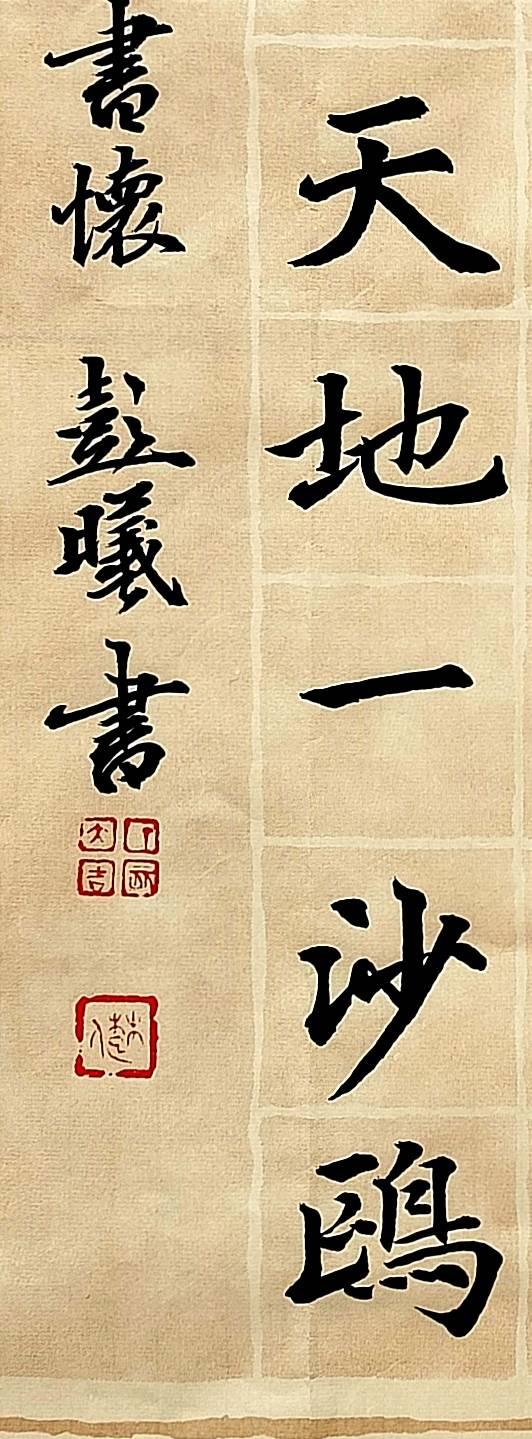 天地一沙鷗
書懷 彭曦書